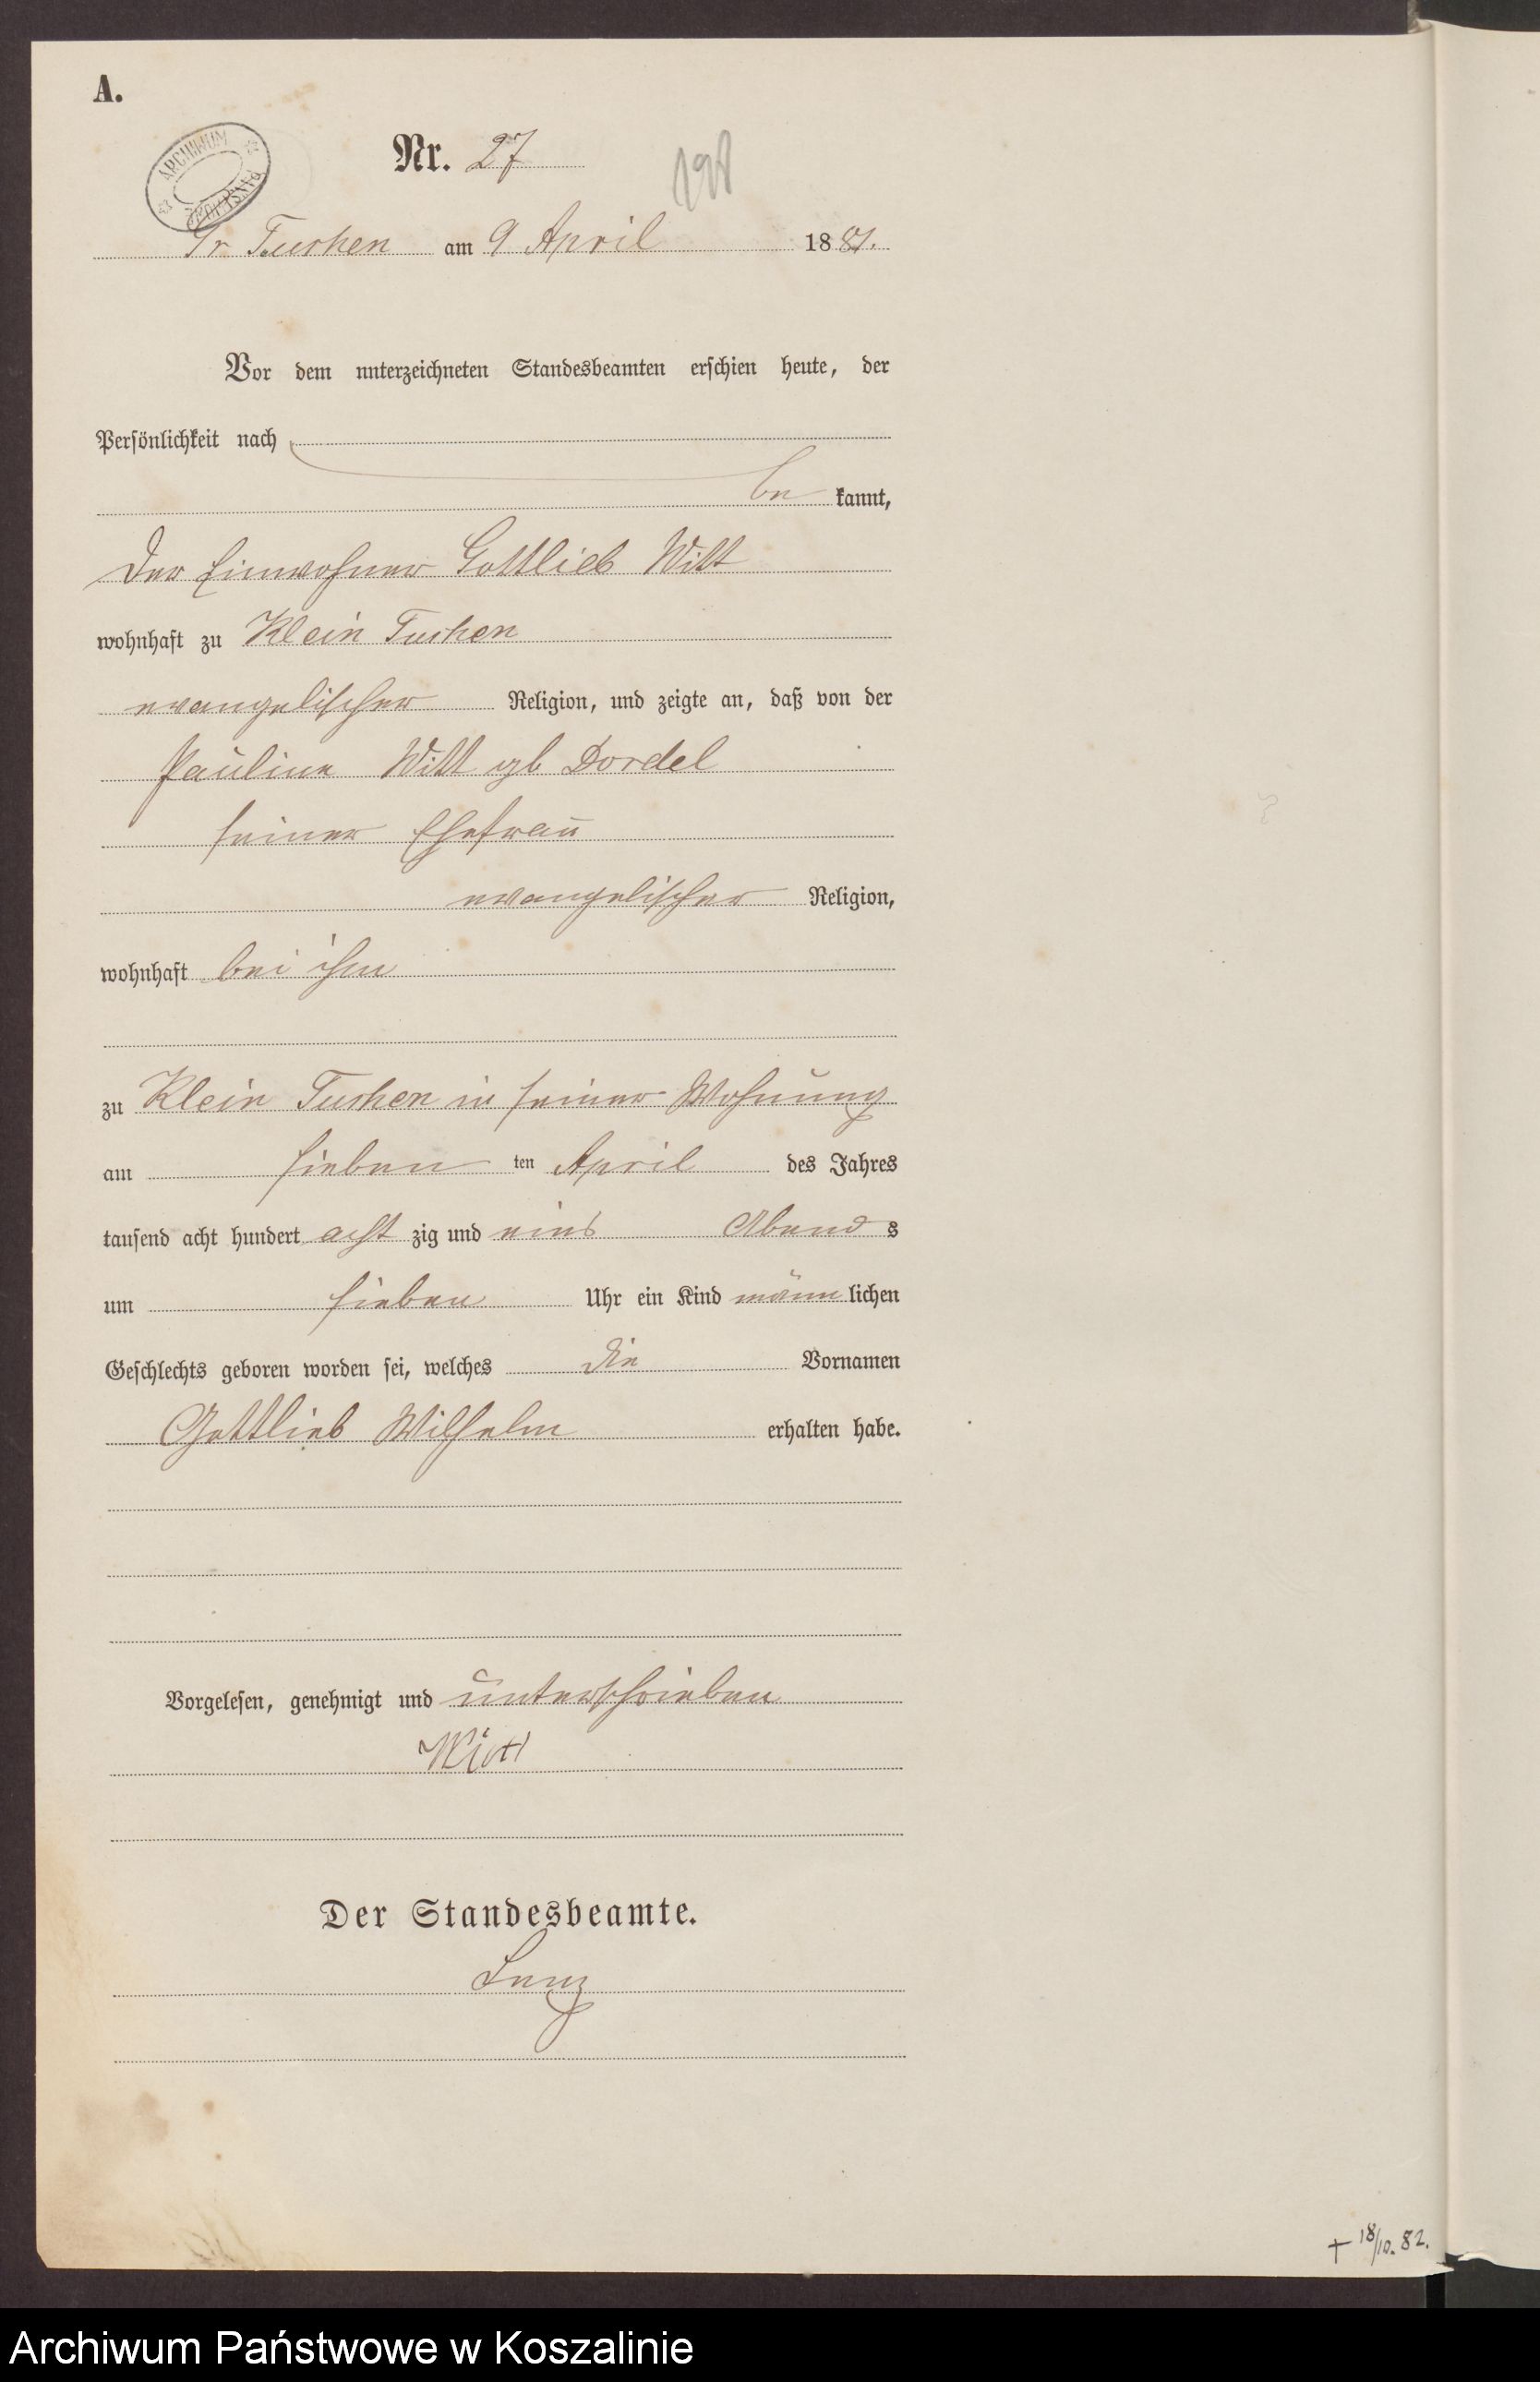 A.
ARCHIWUM PAŃSTWOWE
Nr. 27
198
Gr Tuchen am 9 April 1881.
Vor dem unterzeichneten Standesbeamten erschien heute, der
Persönlichkeit nach
be kannt,
Der Einwohner Gottlieb Witt
wohnhaft zu Klein Tuchen
evangelischer Religion, und zeigte an, daß von der
Pauline Witt gb Dordel
seiner Ehefrau
evangelischer Religion,
wohnhaft bei ihm
zu Klein Tuchen in seiner Wohnung
am sieben ten April des Jahres
tausend acht hundert acht zig und eins Abend s
um sieben Uhr ein Kind männ lichen
Geschlechts geboren worden sei, welches die Vornamen
Gottlieb Wilhelm erhalten habe.
Vorgelesen, genehmigt und unterschrieben
Witt
Der Standesbeamte.
Lenz
+ 18/10. 82.
Archiwum Państwowe w Koszalinie